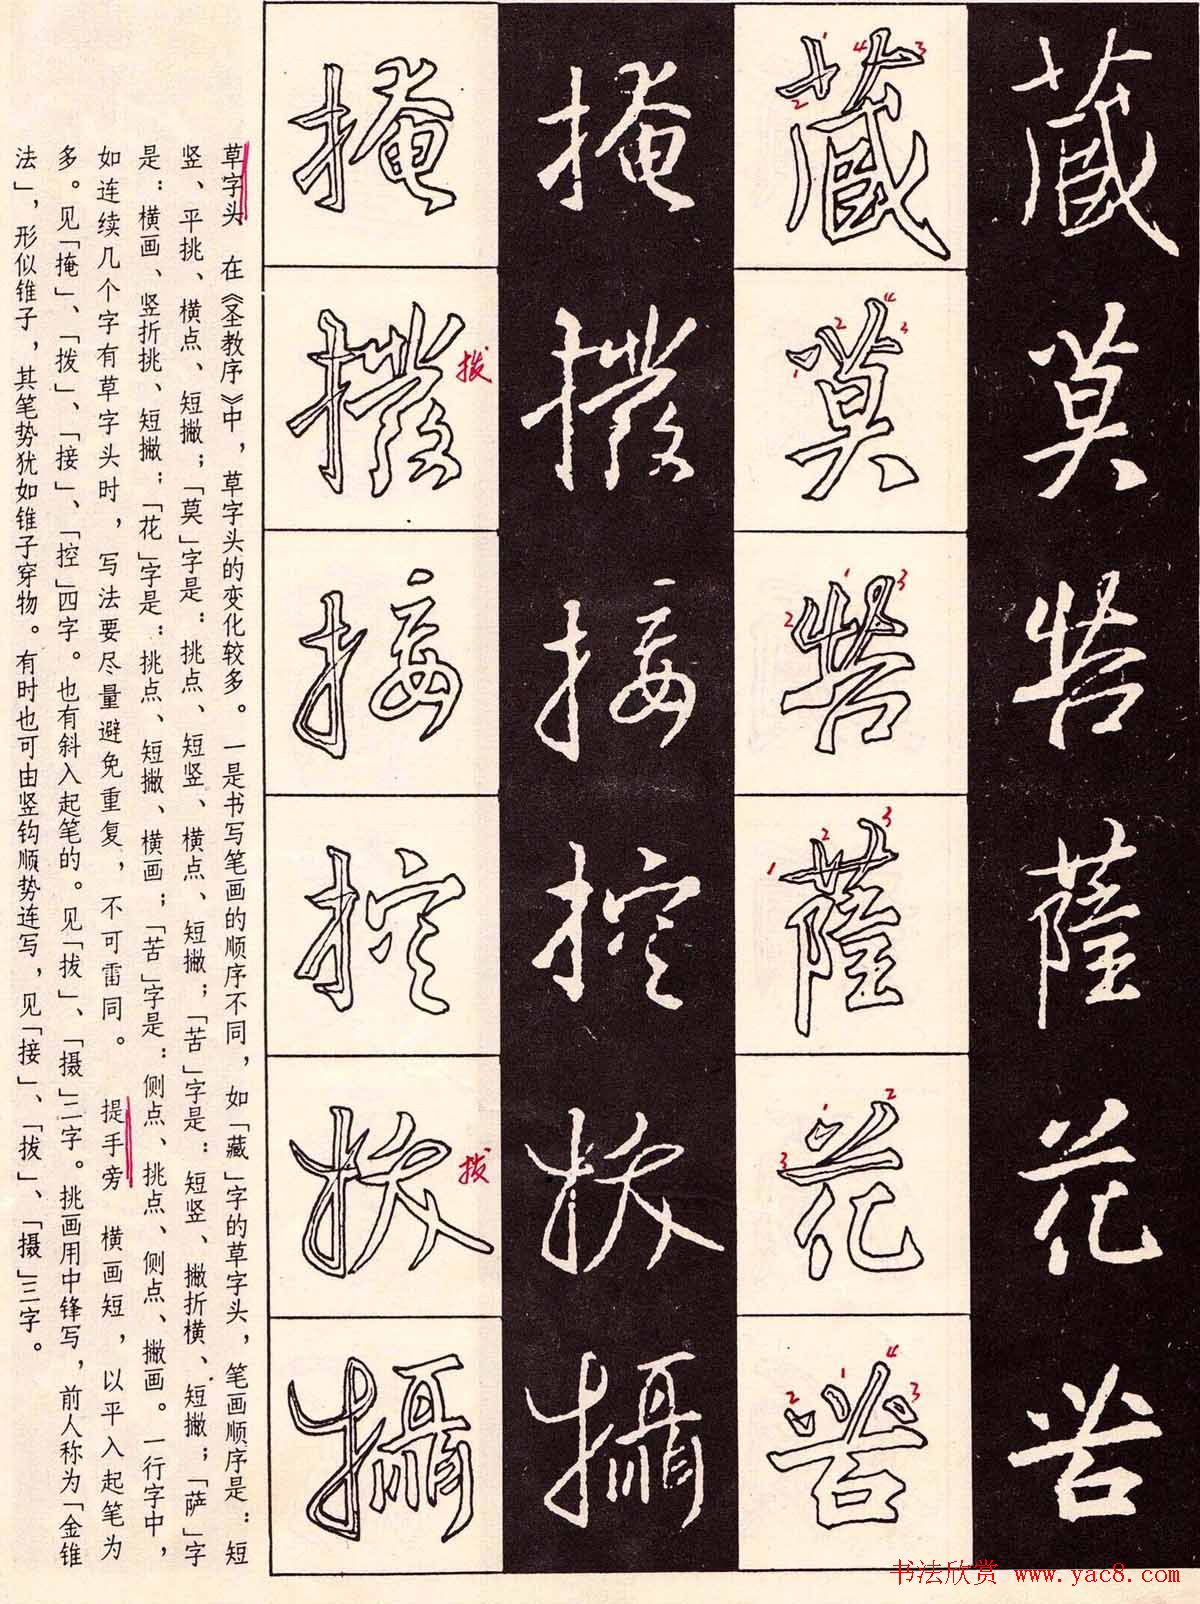 藏莫苦薩花苦
藏莫苦薩花苦
掩撥接控拔攝
掩撥接控拔攝
拨
拨
草字头 在《圣教序》中，草字头的变化较多。一是书写笔画的顺序不同，如「藏」字的草字头，笔画顺序是：短
竖、平挑、横点、短撇；「莫」字是：挑点、短竖、横点、短撇；「苦」字是：短竖、撇折横、短撇；「萨」字
是：横画、竖折挑、短撇；「花」字是：挑点、短撇、横画；「苦」字是：侧点、挑点、侧点、撇画。一行字中，
如连续几个字有草字头时，写法要尽量避免重复，不可雷同。 提手旁 横画短，以平入起笔为
多。见「掩」、「拨」、「接」、「控」四字。也有斜入起笔的。见「拔」、「摄」二字。挑画用中锋写，前人称为「金锥
法」，形似锥子，其笔势犹如锥子穿物。有时也可由竖钩顺势连写，见「接」、「拔」、「摄」三字。
书法欣赏 www.yac8.com